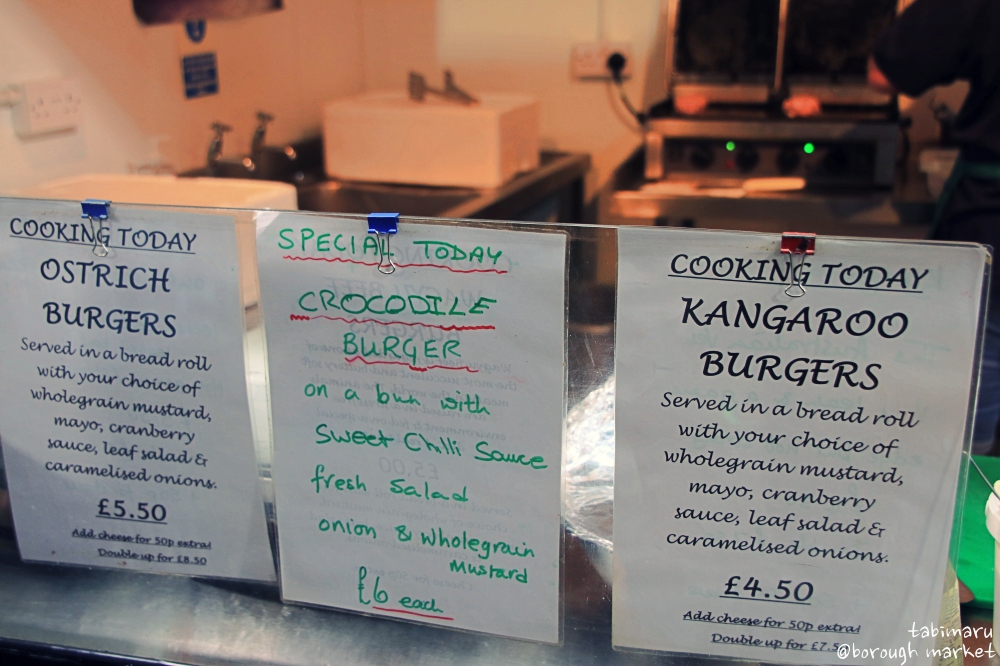 COOKING TODAY
OSTRICH
BURGERS
Served in a bread roll
with your choice of
wholegrain mustard,
mayo, cranberry
sauce, leaf salad &
caramelised onions.
£5.50
Add cheese for 50p extra!
Double up for £8.50
SPECIAL TODAY
CROCODILE
BURGER
on a bun with
Sweet Chilli Sauce
fresh Salad
onion & wholegrain
Mustard
£6 each
COOKING TODAY
KANGAROO
BURGERS
Served in a bread roll
with your choice of
wholegrain mustard,
mayo, cranberry
sauce, leaf salad &
caramelised onions.
£4.50
Add cheese for 50p extra!
Double up for
tabimaru
@borough market